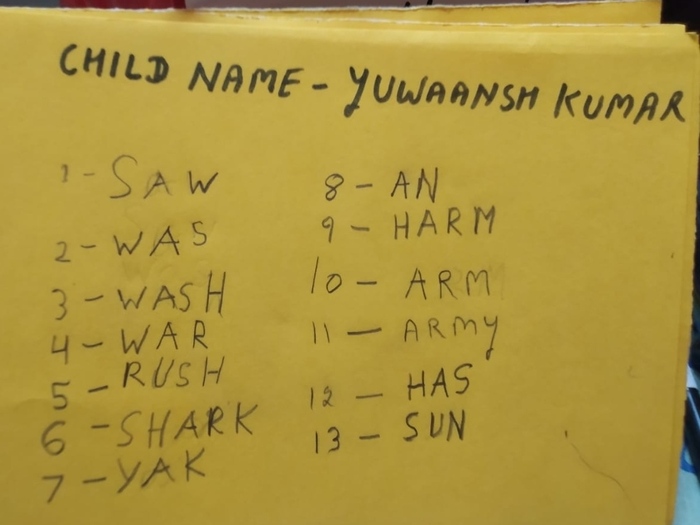 CHILD NAME - YUWAANSH KUMAR
1 - SAW
2 - WAS
3 - WASH
4 - WAR
5 - RUSH
6 - SHARK
7 - YAK
8 - AN
9 - HARM
10 - ARM
11 - ARMY
12 - HAS
13 - SUN